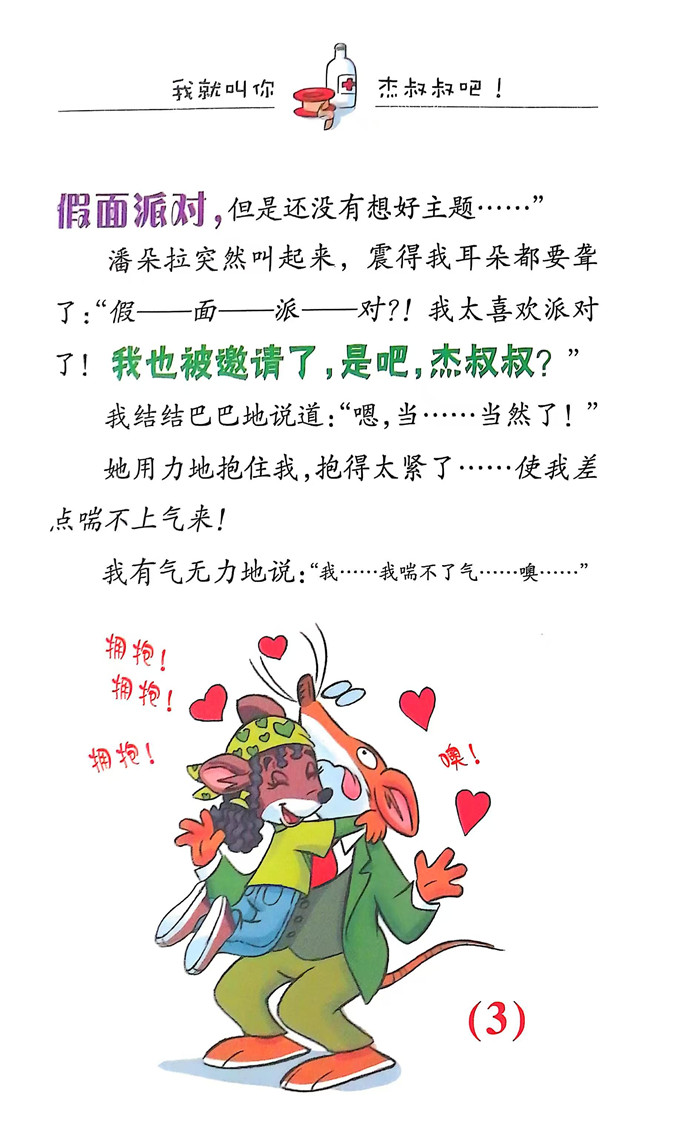 我就叫你 杰叔叔吧！
假面派对，但是还没有想好主题……”
潘朵拉突然叫起来，震得我耳朵都要聋
了：“假——面——派——对？！我太喜欢派对
了！我也被邀请了，是吧，杰叔叔？”
我结结巴巴地说道：“嗯，当……当然了！”
她用力地抱住我，抱得太紧了……使我差
点喘不上气来！
我有气无力地说：“我……我喘不了气……噢……”
拥抱！
拥抱！
拥抱！
噢！
(3)